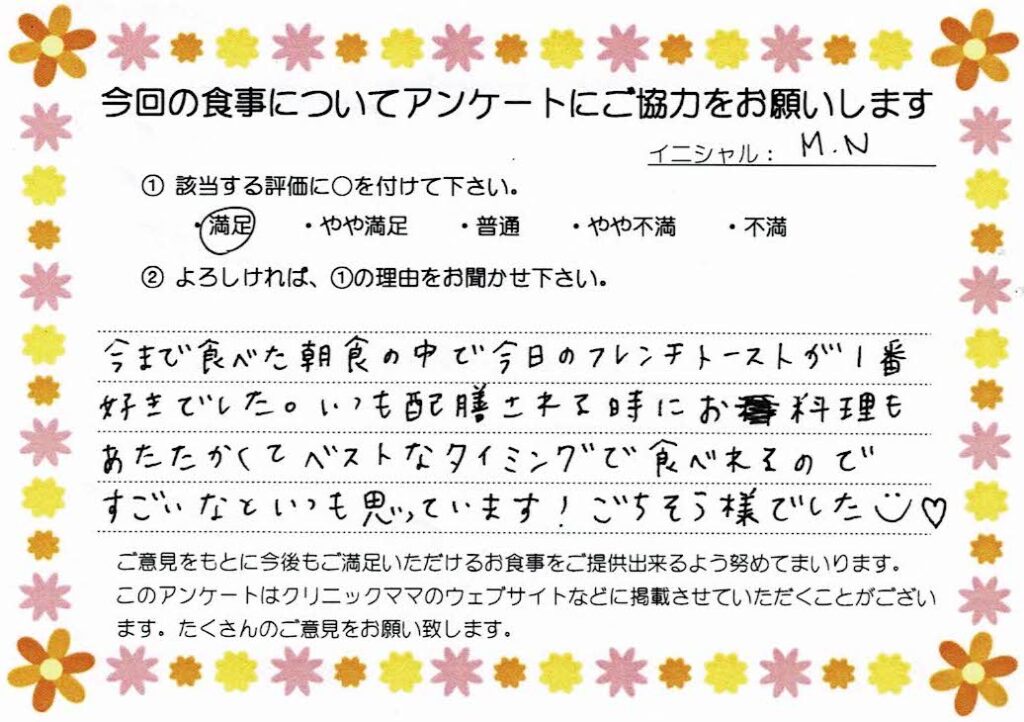 今回の食事についてアンケートにご協力をお願いします
イニシャル： M.N
① 該当する評価に○を付けて下さい。
・満足 ・やや満足 ・普通 ・やや不満 ・不満
② よろしければ、①の理由をお聞かせ下さい。
今まで食べた朝食の中で今日のフレンチトーストが1番
好きでした。いつも配膳される時にお料理も
あたたかくてベストなタイミングで食べれるので
すごいなといつも思っています！ごちそう様でした
ご意見をもとに今後もご満足いただけるお食事をご提供出来るよう努めてまいります。
このアンケートはクリニックママのウェブサイトなどに掲載させていただくことがござい
ます。たくさんのご意見をお願い致します。